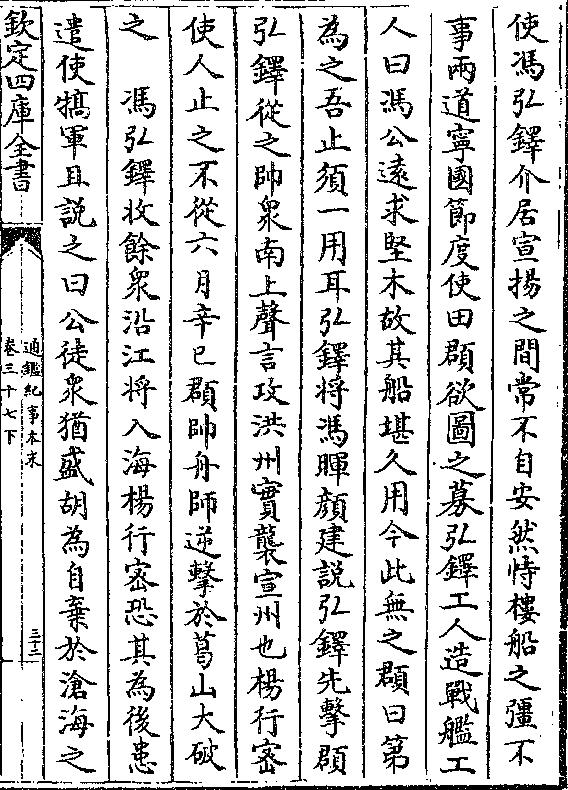 使馮弘鐸介居宣揚之間常不自安然恃樓船之彊不
事兩道寧國節度使田頵欲圖之募弘鐸工人造戰艦工
人曰馮公遠求堅木故其船堪久用今此無之頵曰第
為之吾止須一用耳弘鐸將馮暉顔建説弘鐸先擊頵
弘鐸從之帥衆南上聲言攻洪州實襲宣州也楊行密
使人止之不從六月辛巳頵帥舟師逆擊於葛山大破
之　馮弘鐸收餘衆沿江將入海楊行密恐其為後患
遣使犒軍且説之曰公徒衆猶盛胡為自棄於滄海之
欽定四庫全書
通鑑紀事本末
卷三十七下
三十二